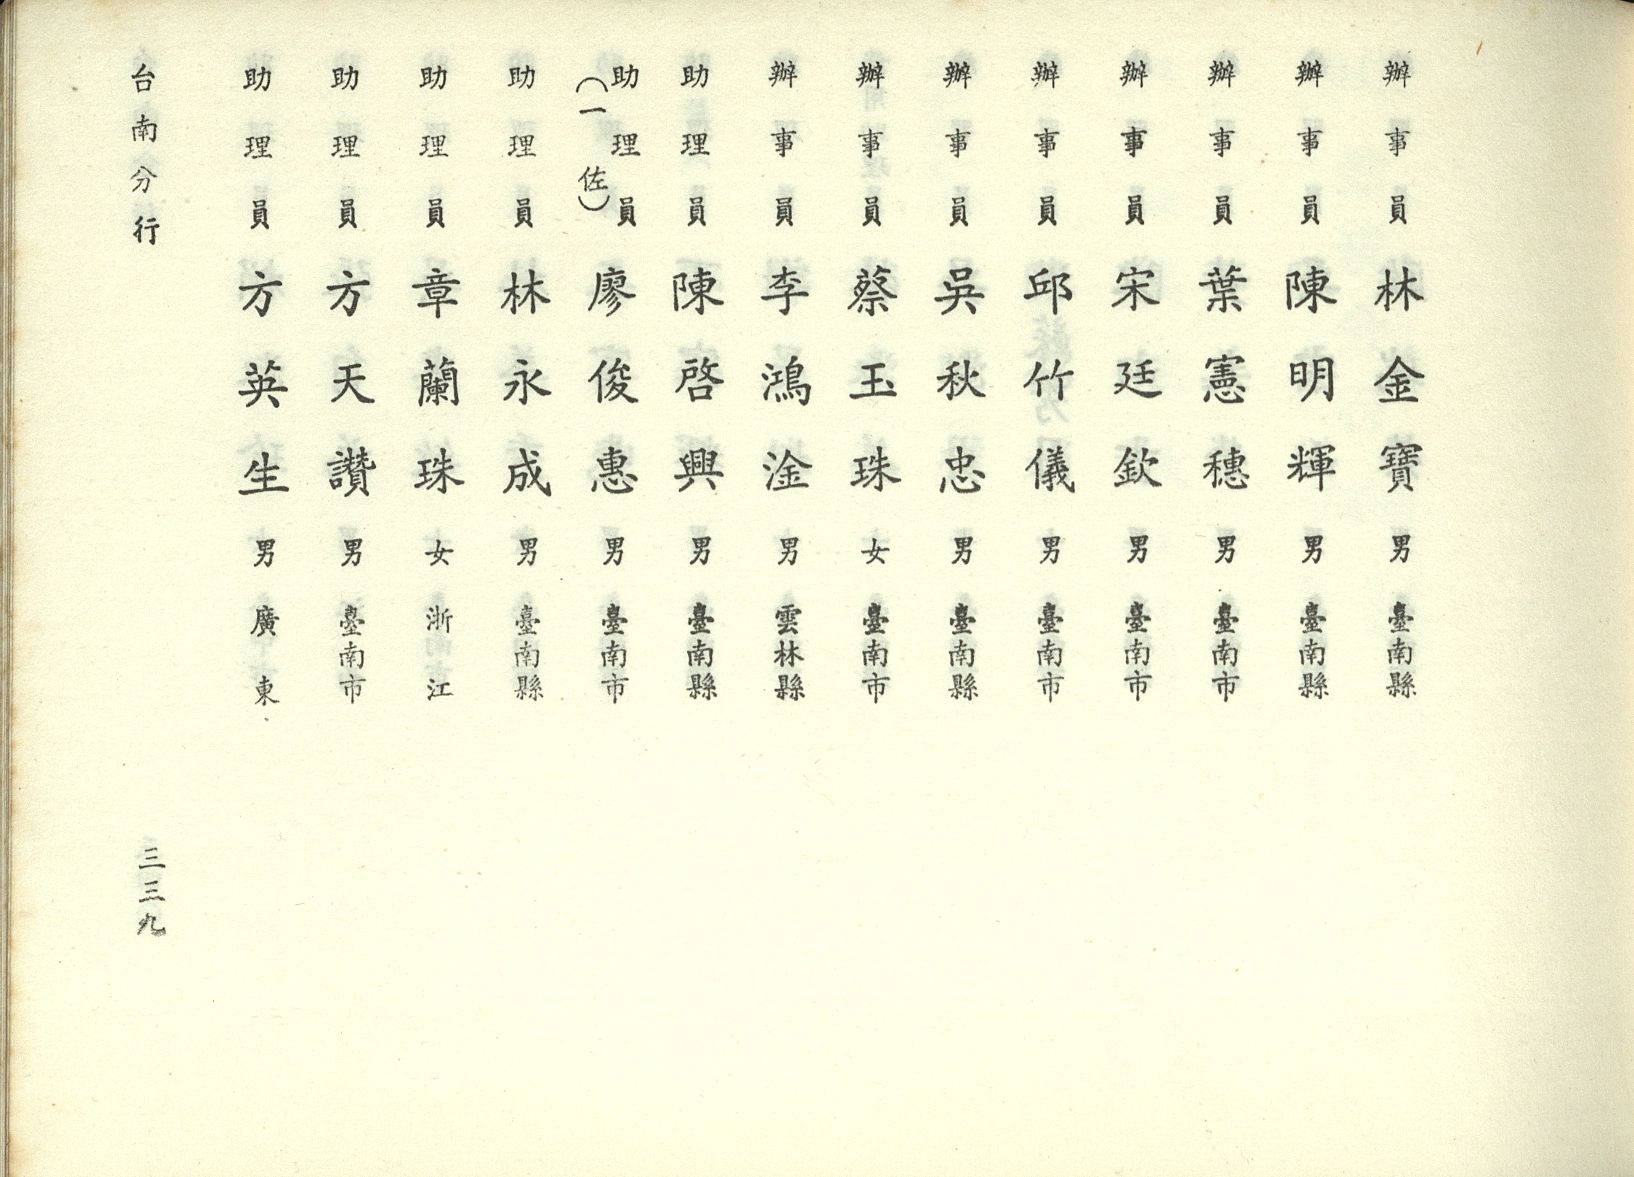 辦事員 林金寶 男 臺南縣
辦事員 陳明輝 男 臺南縣
辦事員 葉憲穗 男 臺南市
辦事員 宋廷欽 男 臺南市
辦事員 邱竹儀 男 臺南市
辦事員 吳秋忠 男 臺南縣
辦事員 蔡玉珠 女 臺南市
辦事員 李鴻淦 男 雲林縣
助理員 陳啓興 男 臺南縣
助理員(一佐) 廖俊惠 男 臺南市
助理員 林永成 男 臺南縣
助理員 章蘭珠 女 浙江
助理員 方天讚 男 臺南市
助理員 方英生 男 廣東
台南分行
三三九